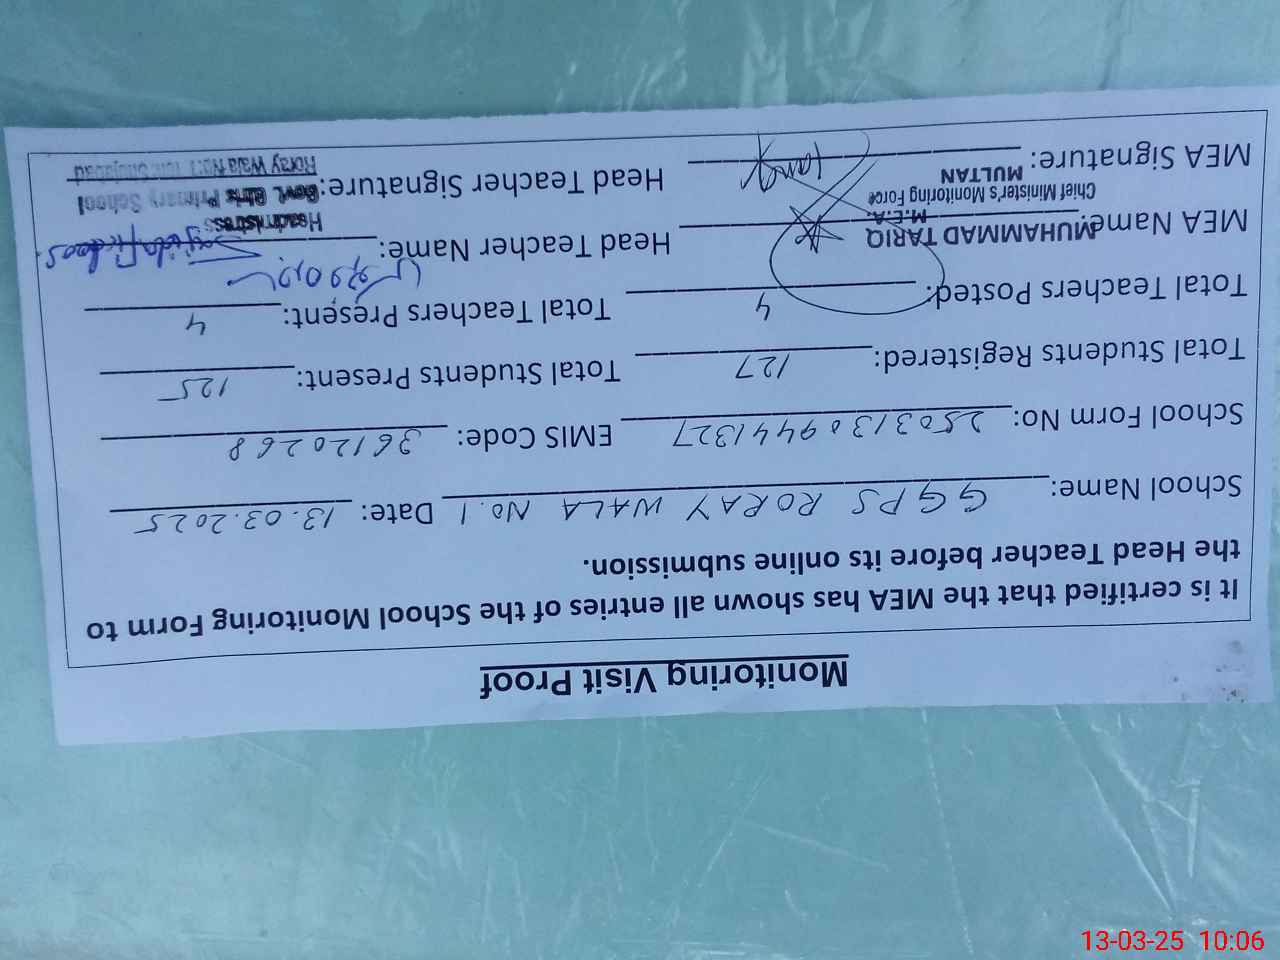 Monitoring Visit Proof
It is certified that the MEA has shown all entries of the School Monitoring Form to
the Head Teacher before its online submission.
School Name: GGPS RORAY WALA No.1 Date: 13.03.2025
School Form No: 25031309441327 EMIS Code: 36120268
Total Students Registered: 127 Total Students Present: 125
Total Teachers Posted: 4 Total Teachers Present: 4
MEA Name: MUHAMMAD TARIQ Head Teacher Name:
M.E.A. Headmistress
Chief Minister's Monitoring Force Govt. Girls Primary School
MULTAN
MEA Signature: Tariq Head Teacher Signature:
Roray Wala No.1
13-03-25 10:06